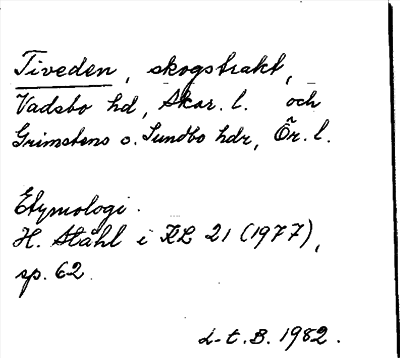 Tiveden, skogstrakt,
Vadsbo hd, Skar. l. och
Grimstens o. Sundbo hdr, Ör. l.
Etymologi.
H. Ståhl i KL 21 (1977),
sp. 62.
L-t. B. 1982.